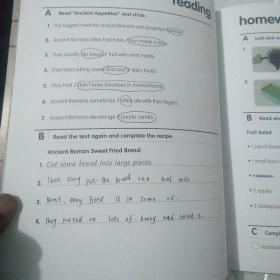 reading
A Read "Ancient Appetites" and circle.
1. The biggest meal for ancient Romans was breakfast / dinner.
2. Ancient Romans often had three / four meals a day.
3. They usually ate bread / fruit with most meals.
4. They liked eating sweet and sour / spicy foods.
5. They had / didn't have tomatoes in Ancient Rome.
6. Ancient Romans sometimes / often ate with their fingers.
7. Ancient Romans ate orange / purple carrots.
B Read the text again and complete the recipe.
Ancient Roman Sweet Fried Bread:
1. Cut some bread into large pieces.
2. Then they put the bread milk.
3. Next, they fried it in some oil.
4. They poured on lots of honey and served it.
home
A Look and w
1
B Read and
Fruit Salad
• 1 cup of
• 1 small
• 1 banana
• 2 apples
• 2 tablespoo
C Compl